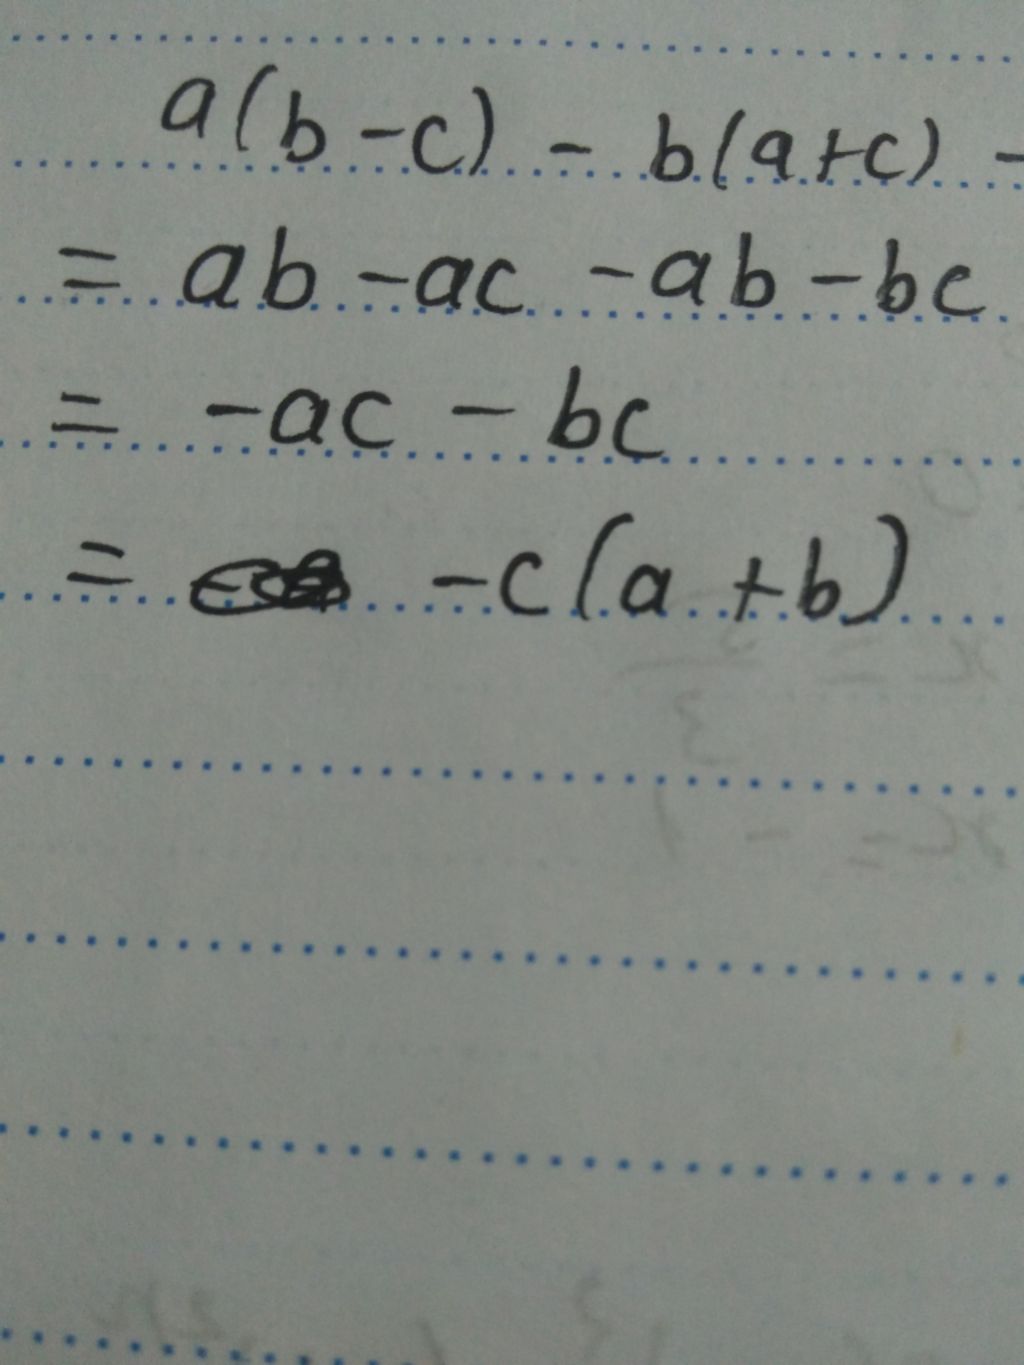 a(b-c) - b(a+c) -
= ab - ac - ab - bc
= -ac - bc
= -c(a+b)